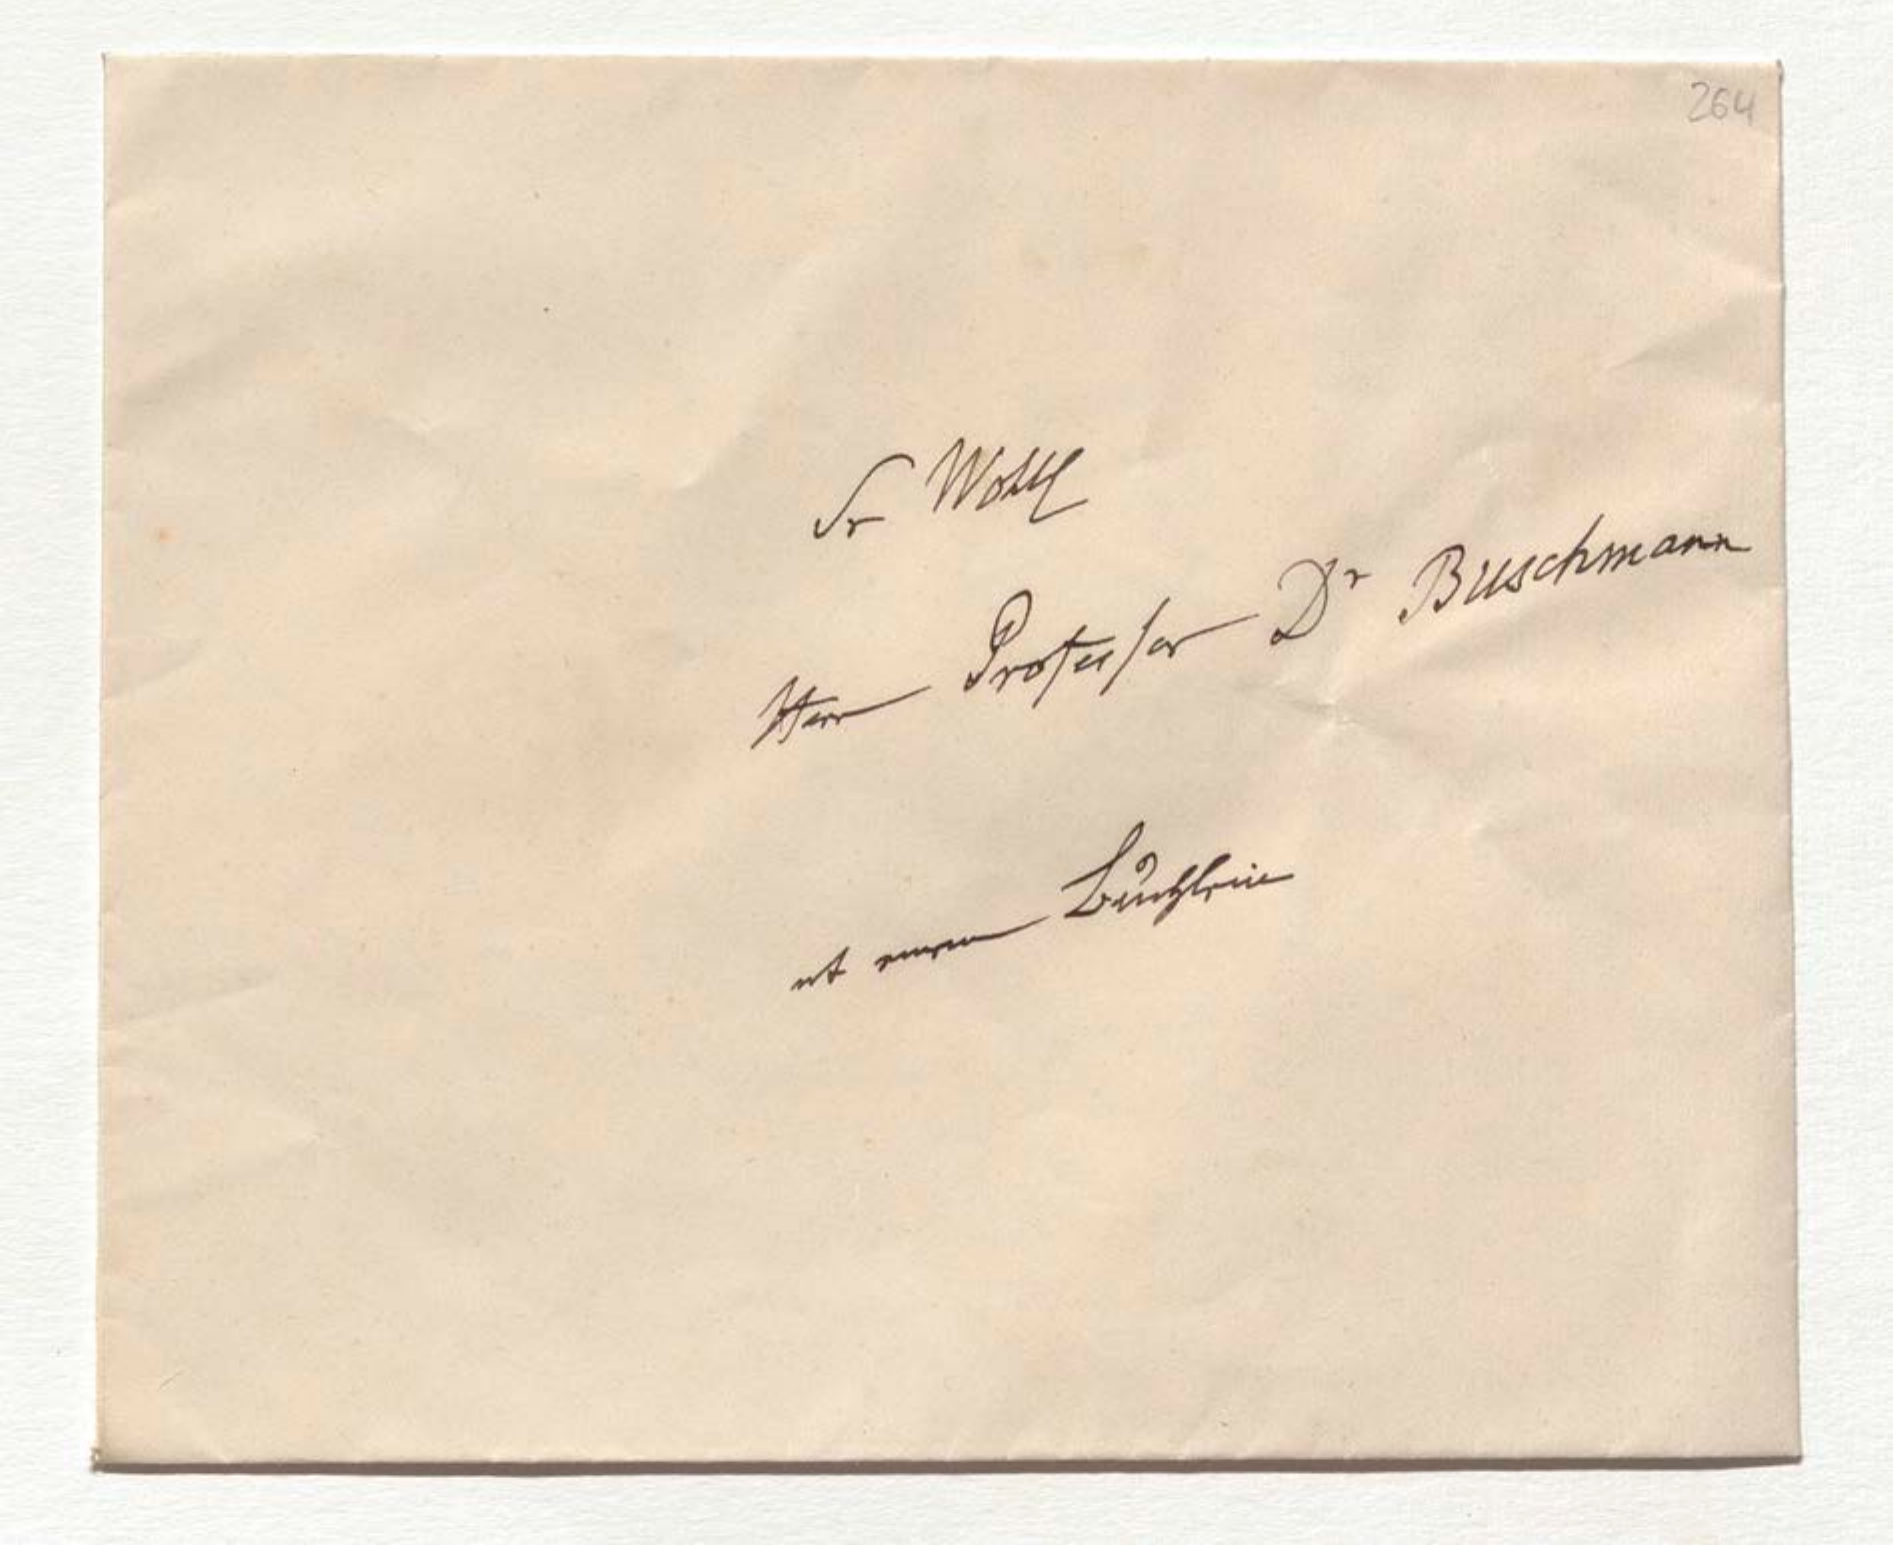 264
Sr Wohl
Herrn Professor Dr Buschmann
mit einem Büchlein